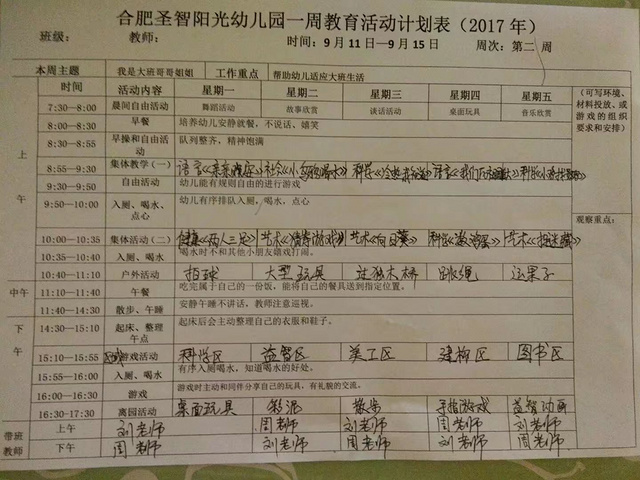 合肥圣智阳光幼儿园一周教育活动计划表（2017 年）
班级： 教师： 时间：9 月 11 日—9 月 15 日 周次：第二 周
本周主题 我是大班哥哥姐姐 工作重点 帮助幼儿适应大班生活
时间 活动内容 星期一 星期二 星期三 星期四 星期五 （可写环境、材料投放、或游戏的组织要求和安排）
上午
7:30—8:00 晨间自由活动 舞蹈活动 故事欣赏 谈话活动 桌面玩具 音乐欣赏
8:00—8:30 早餐 培养幼儿安静就餐，不说话、嬉笑
8:00—8:35 早操和自由活动 队列整齐，精神饱满
8:55—9:30 集体教学（一） 语言 社会 科学 语言 科学
9:30—9:50 自由活动 幼儿能有规则自由的进行游戏
9:50—10:00 入厕、喝水、点心 幼儿有序排队入厕，喝水，点心
观察重点：
10:00—10:35 集体活动（二） 健康《两人三足》 艺术 艺术《向日葵》 科学 艺术
10:35—10:40 入厕、喝水 喝水时不和其他小朋友嬉戏打闹。
10:40—11:10 户外活动 拍球 大型玩具 过独木桥 跳绳 运果子
中午
11:10—11:40 午餐 吃完属于自己的一份饭，能将自己的餐具送到指定位置。
11:40—14:30 散步、午睡 安静午睡不讲话，教师注意巡视。
下午
14:30—15:10 起床、整理午点 起床后会主动整理自己的衣服和鞋子。
15:10—15:55 区域游戏活动 科学区 益智区 美工区 建构区 图书区
15:55—16:00 入厕、喝水 有序入厕喝水，知道喝水的好处。
16:00—16:30 游戏 游戏时主动和同伴分享自己的玩具，有礼貌的交流。
16:30—17:30 离园活动 桌面玩具 彩泥 散步 手指游戏 益智动画
带班教师
上午 刘老师 周老师 刘老师 周老师 刘老师
下午 周老师 刘老师 周老师 刘老师 周老师